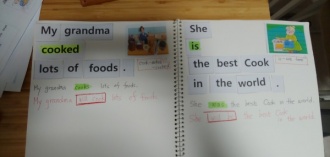 My grandma
cooked
lots of foods .
My grandma cooks lots of foods.
My grandma lots of foods
She
is
the best Cook
in the world .
She the best Cook in the world.
She the best Cook
in the world